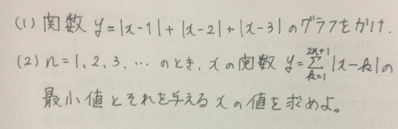 (1) 関数 y=|x-1|+|x-2|+|x-3| のグラフをかけ.
(2) n=1, 2, 3, … のとき, xの関数 y=∑_{k=1}^{2n+1}|x-k|の
最小値とそれを与えるxの値を求めよ。